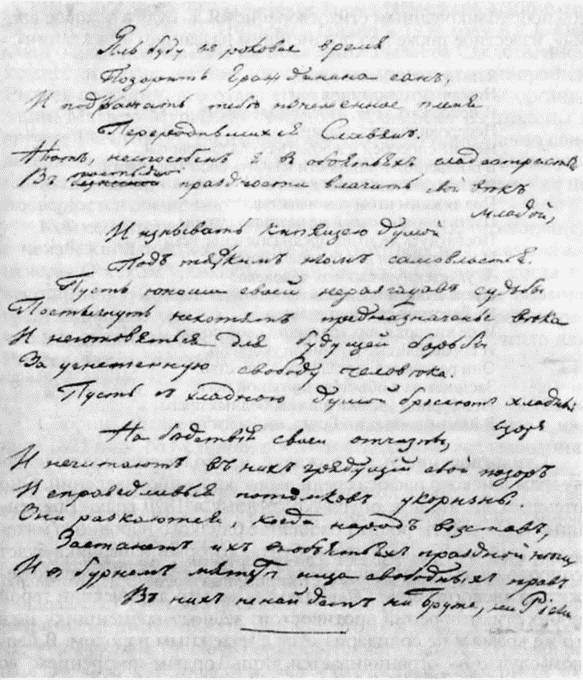 Яль буду въ роковое время
Позорить Гражданина санъ,
И подражать тебѣ изнѣженное племя
Переродившихся Славянъ.
Нѣтъ, неспособенъ я въ объятьяхъ сладострастья
постыдной
Въ праздности влачить свой вѣкъ
младой,
И изнывать кипящею душой
Подъ тяжкимъ игомъ самовластья.
Пусть юноши своей неразгадавъ судьбы
Постигнуть нехотятъ предназначенье вѣка
И неготовятся для будущей борьбы
За угнетенную свободу человѣка.
Пусть съ хладною душой бросаютъ хладный
взоръ
На бѣдствія своей отчизны,
И нечитаютъ въ нихъ грядущій свой позоръ
И справедливыя потомковъ укоризны.
Они раскаются, когда народъ возставъ,
Застанетъ ихъ въ объятьяхъ праздной нѣги
И въ бурномъ мятежѣ ища свободныхъ правъ
Въ нихъ ненайдетъ ни Брута, ни Ріеги